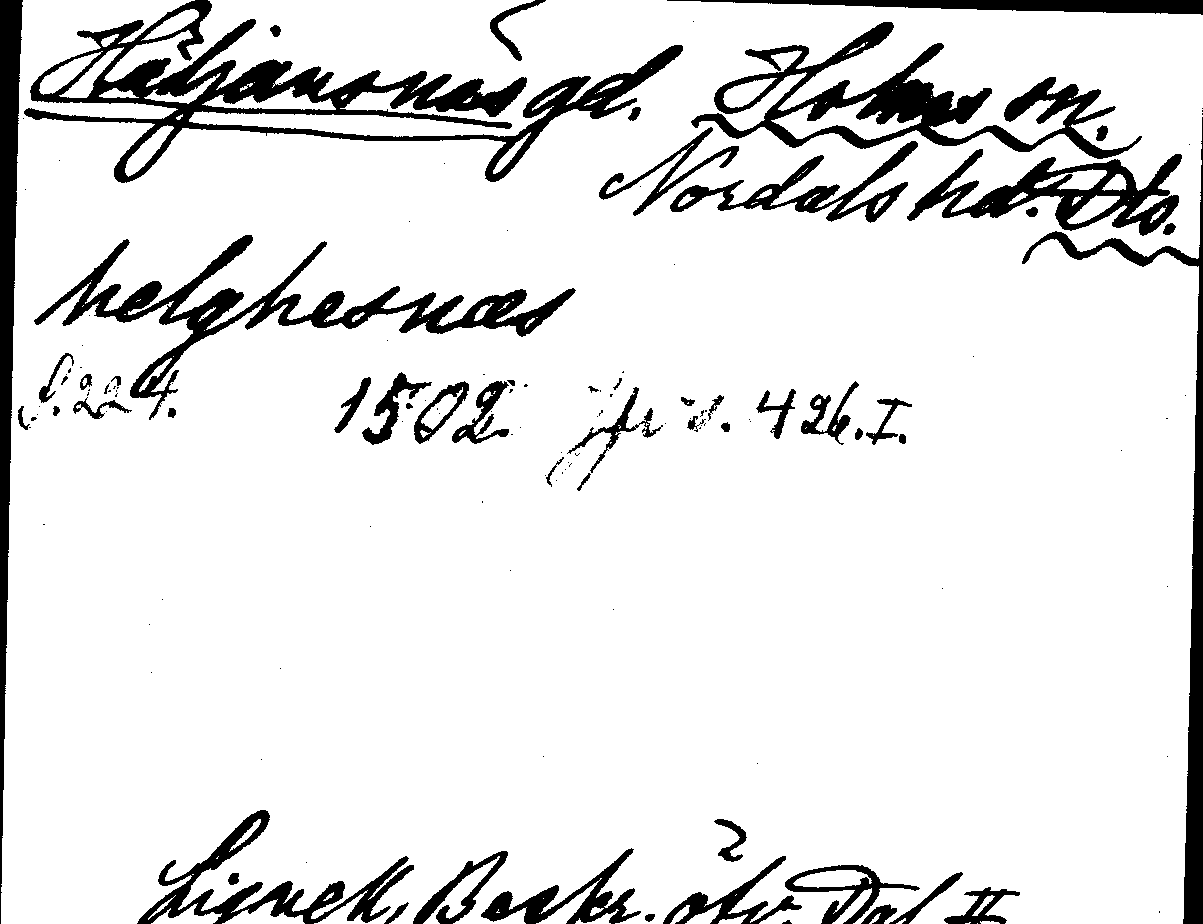 Håtjansnäs gd. Holms sn.
Nordals hd. Dls.
helghesnæs
S. 224. 1502 Jfr s. 426. I.
Lignell, Beskr. öfv. Dal II